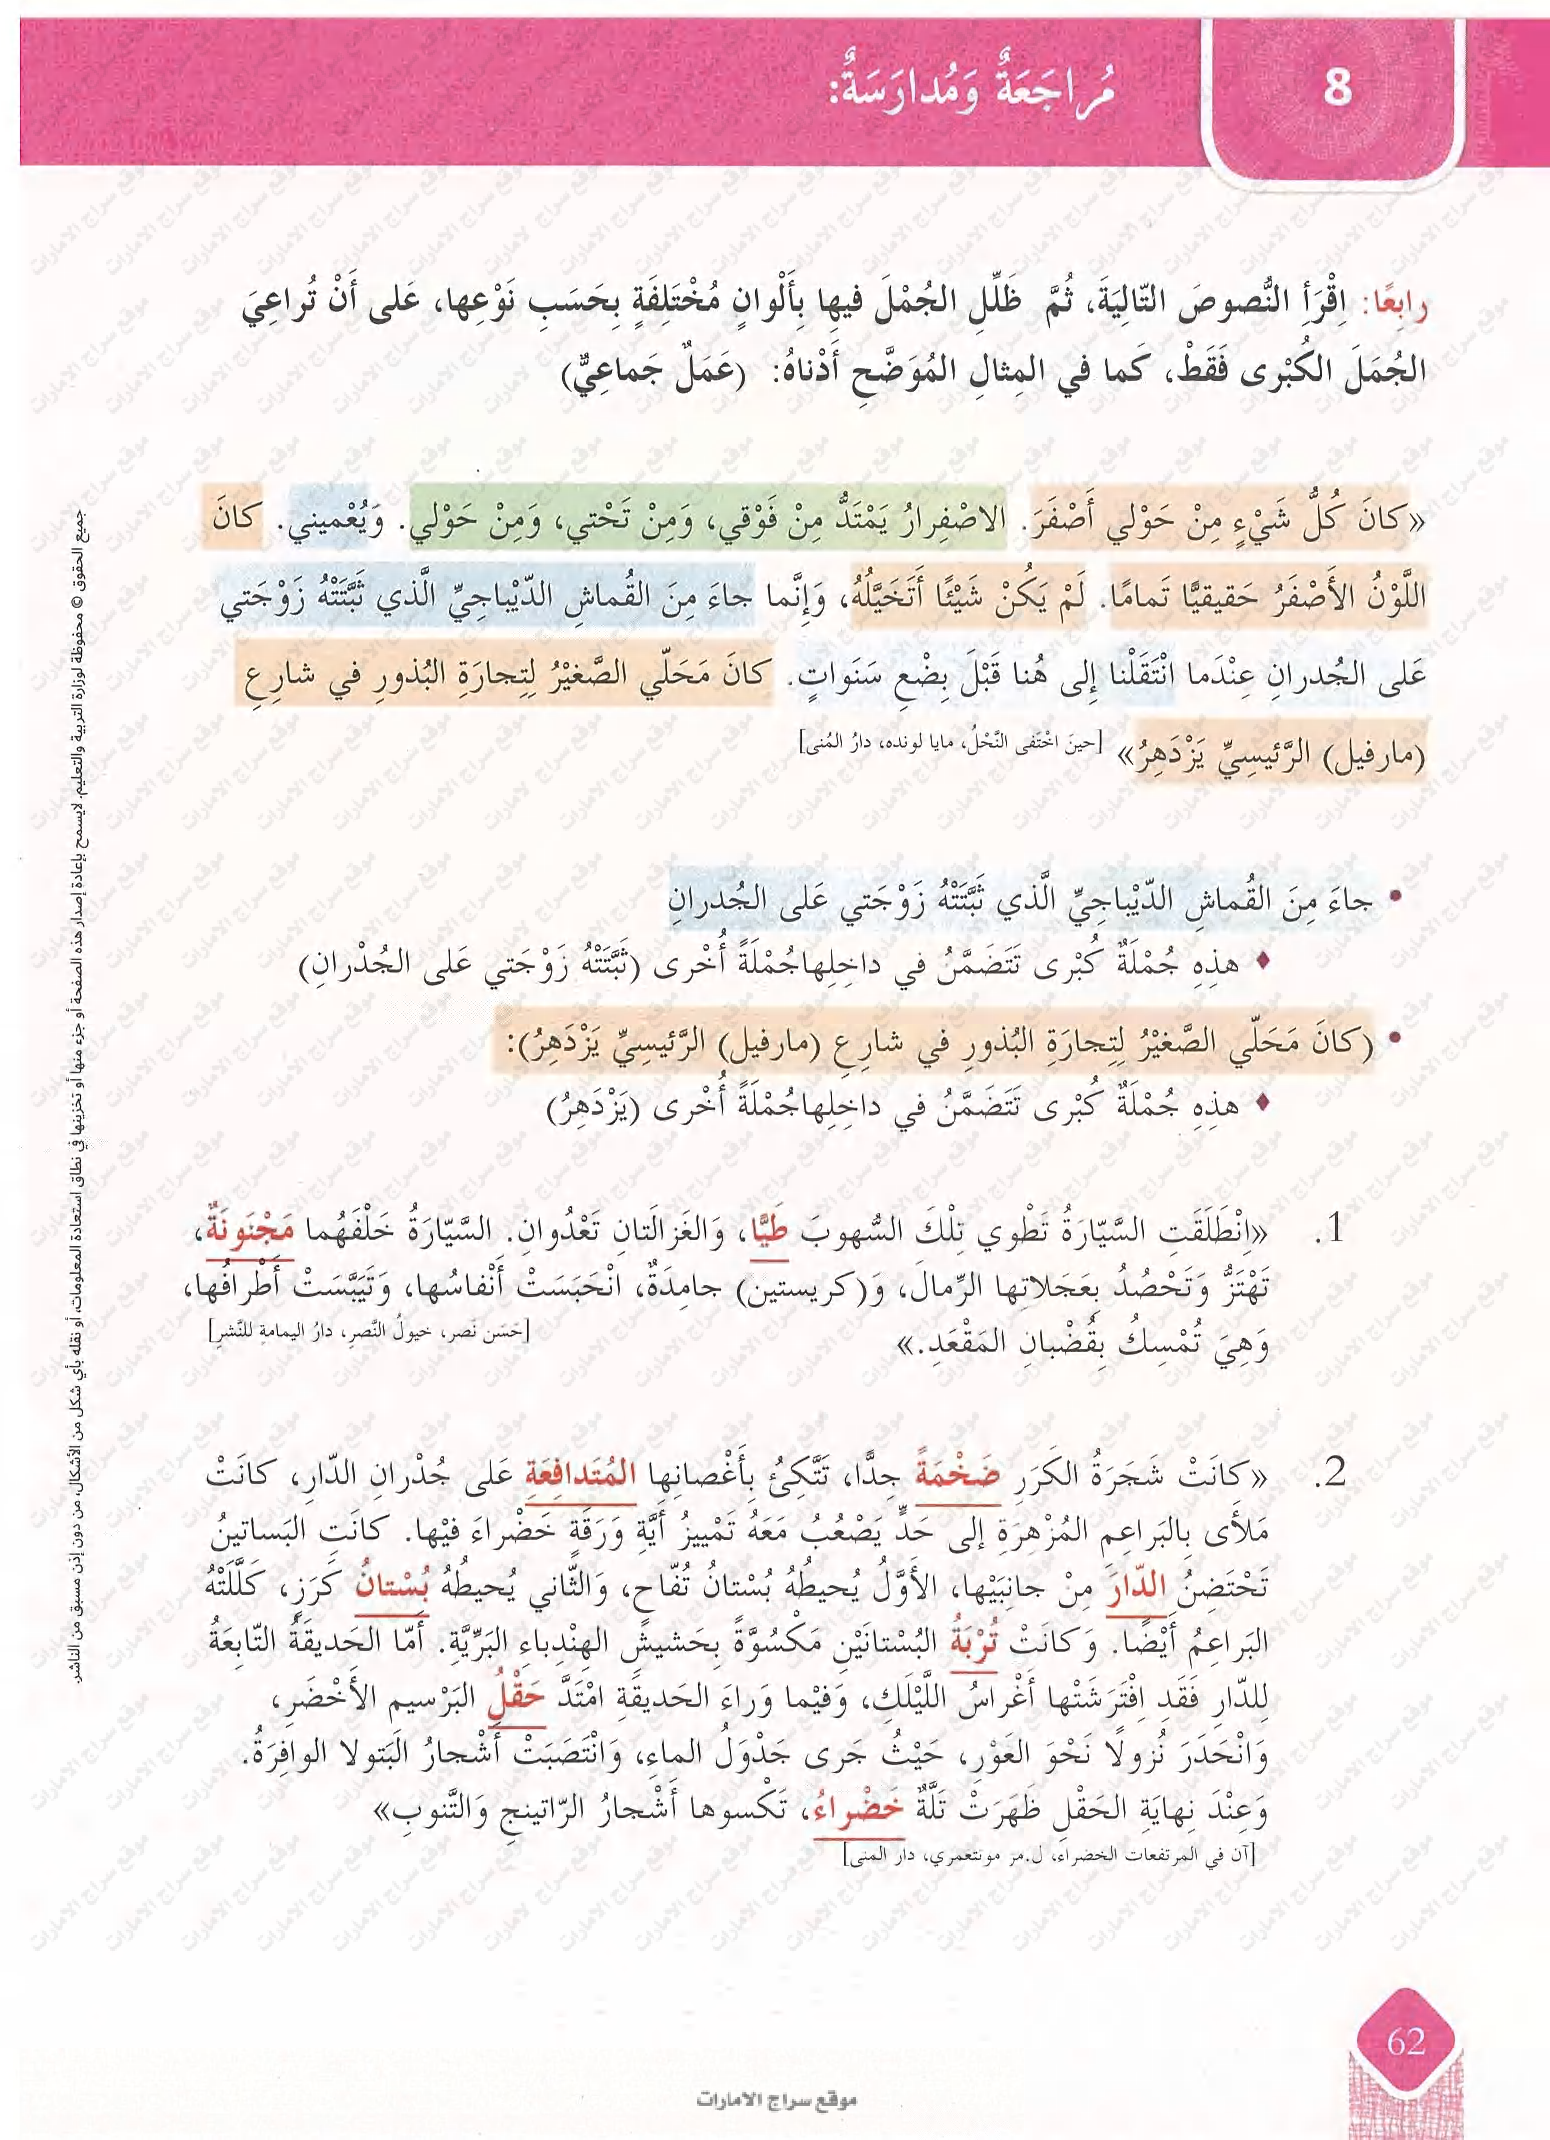 8
مُراجَعَةٌ وَمُدارَسَةٌ:
رابِعًا: اِقْرَأِ النُّصوصَ التّالِيَةَ، ثُمَّ ظَلِّلِ الجُمْلَ فيها بِأَلْوانٍ مُخْتَلِفَةٍ بِحَسَبِ نَوْعِها، عَلى أَنْ تُراعِيَ
الجُمَلَ الكُبْرى فَقَطْ، كَما في المِثالِ المُوَضَّحِ أَدْناهُ: (عَمَلٌ جَماعِيٌّ)
«كانَ كُلُّ شَيْءٍ مِنْ حَوْلي أَصْفَرَ. الاصْفِرارُ يَمْتَدُّ مِنْ فَوْقي، وَمِنْ تَحْتي، وَمِنْ حَوْلي. وَيُعْميني. كانَ
اللَّوْنُ الأَصْفَرُ حَقيقيًّا تَمامًا. لَمْ يَكُنْ شَيْئًا أَتَخَيَّلُهُ، وَإِنَّما جاءَ مِنَ القُماشِ الدّيْباجِيِّ الَّذي ثَبَّتَتْهُ زَوْجَتي
عَلى الجُدرانِ عِنْدَما انْتَقَلْنا إِلى هُنا قَبْلَ بِضْعِ سَنَواتٍ. كانَ مَحَلّي الصَّغيْرُ لِتِجارَةِ البُذورِ في شارِعِ
(مارفيل) الرَّئيسِيِّ يَزْدَهِرُ» [حينَ اخْتَفى النَّحْلُ، مايا لونده، دارُ المُنى]
• جاءَ مِنَ القُماشِ الدّيْباجِيِّ الَّذي ثَبَّتَتْهُ زَوْجَتي عَلى الجُدرانِ
♦ هذِهِ جُمْلَةٌ كُبْرى تَتَضَمَّنُ في داخِلِهاجُمْلَةً أُخْرى (ثَبَّتَتْهُ زَوْجَتي عَلى الجُدْرانِ)
• (كانَ مَحَلّي الصَّغيْرُ لِتِجارَةِ البُذورِ في شارِعِ (مارفيل) الرَّئيسِيِّ يَزْدَهِرُ):
♦ هذِهِ جُمْلَةٌ كُبْرى تَتَضَمَّنُ في داخِلِهاجُمْلَةً أُخْرى (يَزْدَهِرُ)
1. «اِنْطَلَقَتِ السَّيّارَةُ تَطْوي تِلْكَ السُّهوبَ طَيًّا، وَالغَزالَتانِ تَعْدُوانِ. السَّيّارَةُ خَلْفَهُما مَجْنَونَةٌ،
تَهْتَزُّ وَتَحْصُدُ بِعَجَلاتِها الرِّمالَ، وَ(كريستين) جامِدَةٌ، انْحَبَسَتْ أَنْفاسُها، وَتَيَبَّسَتْ أَطْرافُها،
وَهِيَ تُمْسِكُ بِقُضْبانِ المَقْعَدِ.» [حَسَن نَصر، خيولُ النَّصرِ، دارُ اليمامةِ للنَّشرِ]
2. «كانَتْ شَجَرَةُ الكَرَزِ ضَخْمَةً جِدًّا، تَتَّكِئُ بِأَغْصانِها المُتَدافِعَةِ عَلى جُدْرانِ الدّارِ، كانَتْ
مَلأى بِالبَراعِمِ المُزْهِرَةِ إِلى حَدٍّ يَصْعُبُ مَعَهُ تَمْييزُ أَيَّةِ وَرَقَةٍ خَضْراءَ فيْها. كانَتِ البَساتينُ
تَحْتَضِنُ الدّارَ مِنْ جانِبَيْها، الأَوَّلُ يُحيطُهُ بُسْتانُ تُفّاحٍ، وَالثّاني يُحيطُهُ بُسْتانُ كَرَزٍ، كَلَّلَتْهُ
البَراعِمُ أَيْضًا. وَكانَتْ تُرْبَةُ البُسْتانَيْنِ مَكْسُوَّةً بِحَشيشِ الهِنْدِباءِ البَرِّيَّةِ. أَمّا الحَديقَةُ التّابِعَةُ
لِلدّارِ فَقَدِ افْتَرَشَتْها أَغْراسُ اللَّيْلَكِ، وَفيْما وَراءَ الحَديقَةِ امْتَدَّ حَقْلُ البَرْسيمِ الأَخْضَرِ،
وَانْحَدَرَ نُزولًا نَحْوَ الغَوْرِ، حَيْثُ جَرى جَدْوَلُ الماءِ، وَانْتَصَبَتْ أَشْجارُ البَتولا الوافِرَةُ.
وَعِنْدَ نِهايَةِ الحَقْلِ ظَهَرَتْ تَلَّةٌ خَضْراءُ، تَكْسوها أَشْجارُ الرّاتينجِ وَالتَّنوبِ»
[آن في المرتفعات الخضراء، ل.مز مونتغمري، دار المنى]
جميع الحقوق © محفوظة لوزارة التربية والتعليم. لايسمح بإعادة إصدار هذه الصفحة أو جزء منها أو تخزينها في نطاق استعادة المعلومات، أو نقله بأي شكل من الأشكال، من دون إذن مسبق من الناشر.
62
موقع سراج الامارات